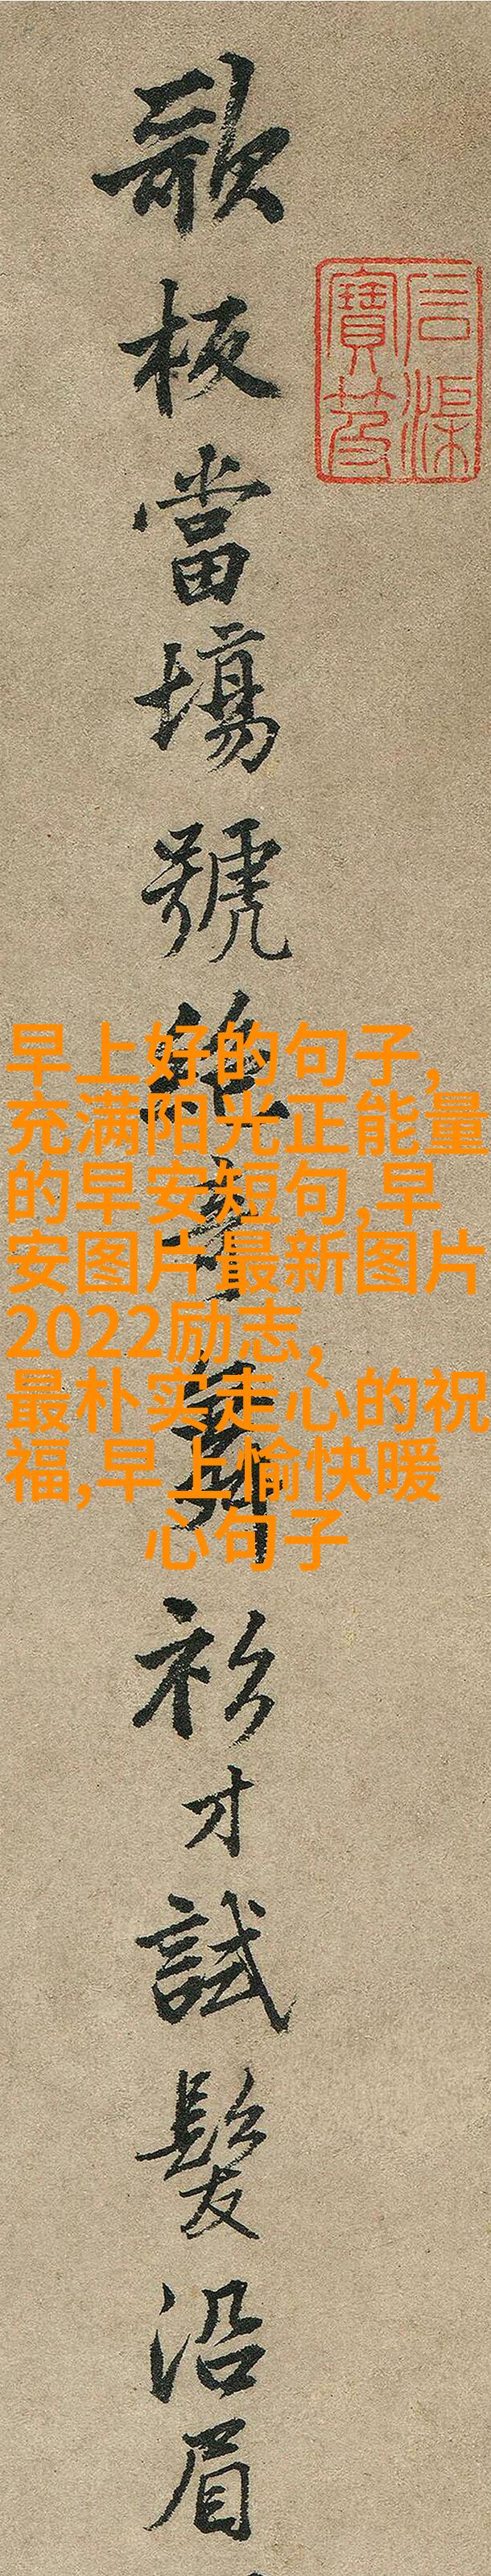 石渠寶笈
歌板當場號絕奇舞衫才試髮沿眉
早上好的句子,
充满阳光正能量
的早安短句,早
安图片最新图片
2022励志,
最朴实走心的祝
福,早上愉快暖
心句子